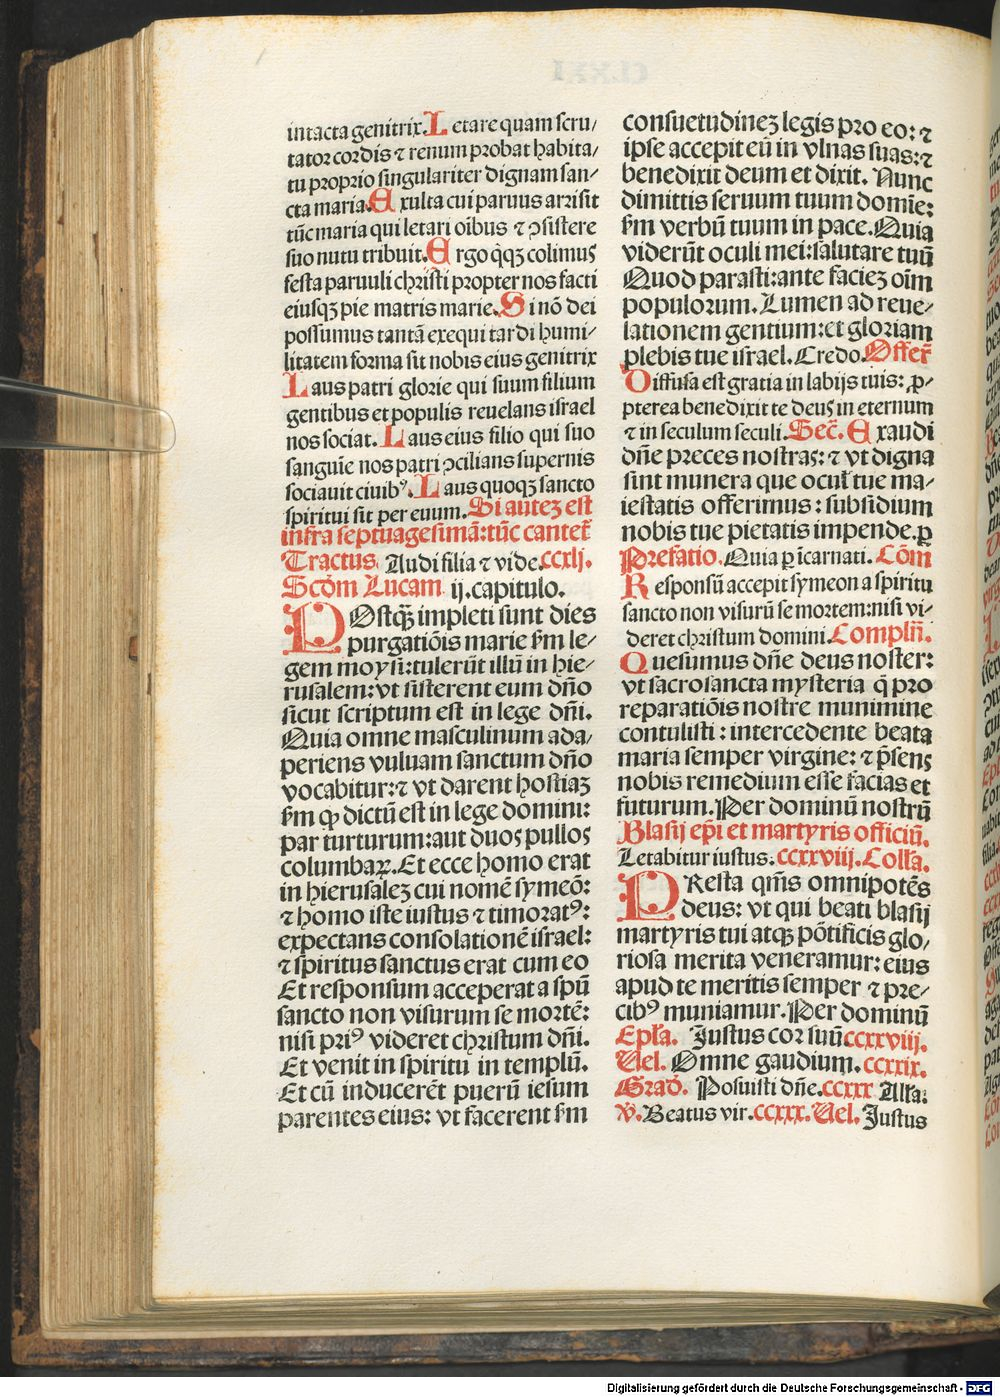 intacta genitrix. Letare quam scru/
tator cordis ⁊ renum probat habita/
tu proprio singulariter dignam san/
cta maria. Exulta cui paruus arrisit
tūc maria qui letari oībus ⁊ ɔsistere
suo nutu tribuit. Ergo q̄qꝫ colimus
festa paruuli christi propter nos facti
eiusqꝫ pie matris marie. Si nō dei
possumus tantā exequi tardi humi/
litatem forma sit nobis eius genitrix
Laus patri glorie qui suum filium
gentibus et populis reuelans israel
nos sociat. Laus eius filio qui suo
sanguīe nos patri ɔcilians supernis
sociauit ciuibꝰ. Laus quoqꝫ sancto
spiritui sit per euum. Si auteꝫ est
infra septuagesimā: tūc cantet̄
Tractus. Audi filia ⁊ vide. ccxlj.
Scd̄m Lucam ij. capitulo.
POstqꝫ̄ impleti sunt dies
purgatiōis marie ẜm le/
gem moysi: tulerūt illū in hie/
rusalem: vt sisterent eum dn̄o
sicut scriptum est in lege dn̄i.
Quia omne masculinum ada/
periens vuluam sanctum dn̄o
vocabitur: ⁊ vt darent hostiaꝫ
ẜm qp̄ dictū est in lege domini:
par turturum: aut duos pullos
columbaꝝ. Et ecce homo erat
in hierusaleꝫ cui nomē symeō:
⁊ homo iste iustus ⁊ timoratꝰ:
expectans consolationē israel:
⁊ spiritus sanctus erat cum eo
Et responsum acceperat a spū
sancto non visurum se mortē:
nisi priꝰ videret christum dn̄i.
Et venit in spiritu in templū.
Et cū inducerēt puerū iesum
parentes eius: vt facerent ẜm
consuetudineꝫ legis pro eo: ⁊
ipse accepit eū in vlnas suas: ⁊
benedixit deum et dixit. Nunc
dimittis seruum tuum domīe:
ẜm verbū tuum in pace. Quia
viderūt oculi mei: salutare tuū
Quod parasti: ante facieꝫ oīm
populorum. Lumen ad reue/
lationem gentium: et gloriam
plebis tue israel. Credo. Offer̄
Diffusa est gratia in labijs tuis: ꝓ/
pterea benedixit te deus in eternum
⁊ in seculum seculi. Sec̄. Exaudi
dn̄e preces nostras: ⁊ vt digna
sint munera que ocul̄ tue ma/
iestatis offerimus: subsidium
nobis tue pietatis impende. ꝑ
Prefatio. Quia ꝑ īcarnati. Cōm
Responsū accepit symeon a spiritu
sancto non visurū se mortem: nisi vi/
deret christum domini. Compln̄.
Quesumus dn̄e deus noster:
vt sacrosancta mysteria q̄ pro
reparatiōis nostre munimine
contulisti: intercedente beata
maria semper virgine: ⁊ p̄sens
nobis remedium esse facias et
futurum. Per dominū nostrū
Blasij ep̄i et martyris officiū.
Letabitur iustus. ccxxviij. Coll̄a.
PResta qm̄s omnipotēs
deus: vt qui beati blasij
martyris tui atqꝫ pōtificis glo/
riosa merita veneramur: eius
apud te meritis semper ⁊ pre/
cibꝰ muniamur. Per dominū
Epl̄a. Justus cor suū ccxxviij.
Uel. Omne gaudium. ccxxix.
Grad̄. Posuisti dn̄e. ccxxx All̄a.
℣. Beatus vir. ccxxx. Uel. Justus
Digitalisierung gefördert durch die Deutsche Forschungsgemeinschaft - DFG